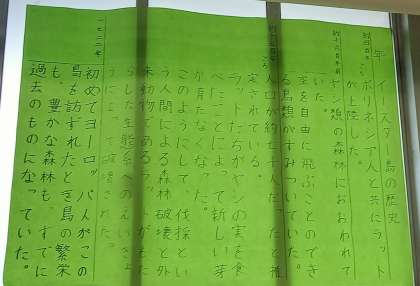 年 イースター島の歴史
ポリネシア人と共にラット
が上陸した。
ヤシ類の森林におおわれて
いた。
空を自由に飛ぶことのでき
る鳥類がすみついていた。
人口が約七千人だったと推
定されている。
ラットたちがヤシの実を食
べたことによって新しい芽
が育たなくなった。
このようにして、伐採とい
う人間による森林破壊と外
来動物であるラットがもた
らした生態系へのえいきょ
うによって破壊された。
一七二二年
初めてヨーロッパ人がこの
島を訪ずれたとき島の繁栄
も、豊かな森林も、すでに
過去のものになっていた。